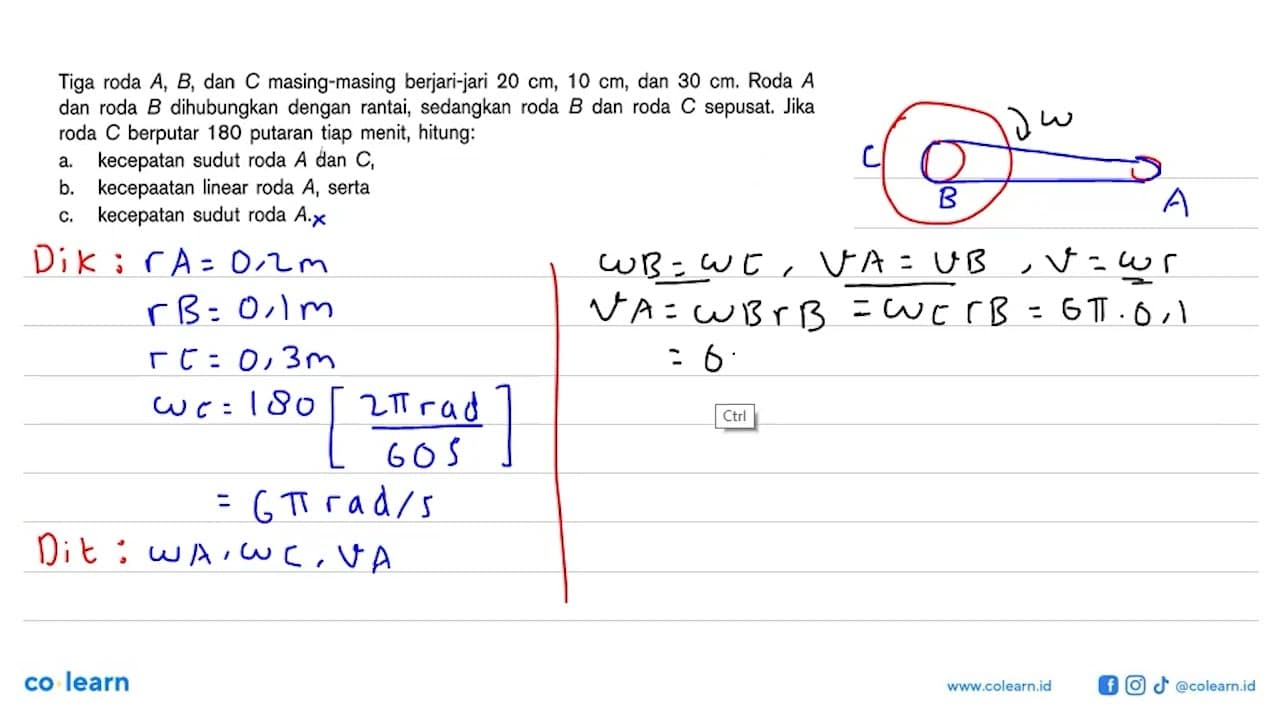 Tiga roda A, B, dan C masing-masing berjari-jari 20 cm, 10 cm, dan 30 cm. Roda A
dan roda B dihubungkan dengan rantai, sedangkan roda B dan roda C sepusat. Jika
roda C berputar 180 putaran tiap menit, hitung:
a. kecepatan sudut roda A dan C,
b. kecepaatan linear roda A, serta
c. kecepatan sudut roda A. x
C
B
A
ω
Dik : rA = 0,2 m
rB = 0,1 m
rC = 0,3 m
ωC = 180 [ 2π rad / 60 s ]
= 6π rad/s
Dit : ωA, ωC, vA
ωB = ωC, vA = vB, v = ωr
vA = ωB rB = ωC rB = 6π . 0,1
= 0.
Ctrl
co·learn
www.colearn.id
@colearn.id